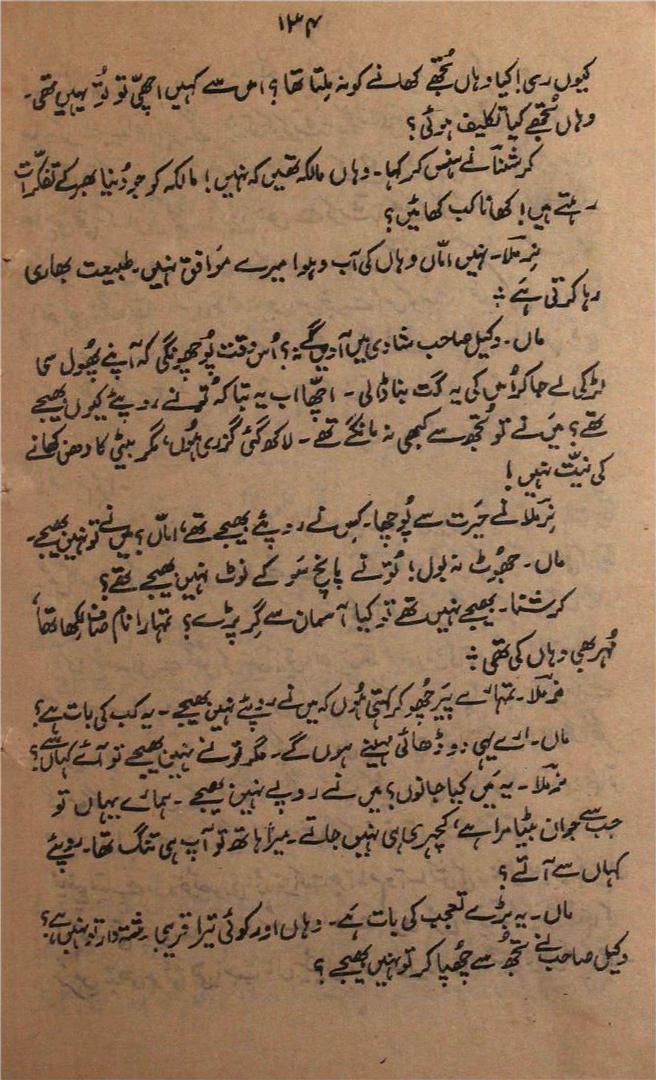 ۱۳۴
کیوں ری! کیا وہاں تجھے کھانے کو نہ ملتا تھا؟ اس سے کہیں اچھی تو تُو یہیں تھی۔
وہاں تجھے کیا تکلیف ہوئی؟
کرشنا نے ہنس کر کہا۔ وہاں مالکہ تھیں کہ نہیں! مالکہ کو جو دُنیا بھر کے تفکرات
رہتے ہیں! کھانا کب کھائیں؟
نرملا۔ نہیں امّاں وہاں کی آب و ہوا میرے موافق نہیں۔ طبیعت بھاری
رہا کرتی ہے ؞
ماں۔ وکیل صاحب شادی میں آدیں گے نہ؟ اُس وقت پُوچھونگی کہ آپنے پھُول سا
لڑکی لے جا کر اُس کی یہ گت بنا ڈالی۔ اچھّا اب یہ بتا کہ تُو نے روپئے کیوں بھیجے
تھے؟ میں نے تو تُجھ سے کبھی نہ مانگے تھے۔ لاکھ گئی گزری ہُوں، مگر بیٹی کا دھن کھانے
کی نیّت نہیں!
نِرملا نے حیرت سے پُوچھا۔ کِس نے روپئے بھیجے تھے، امّاں؟ میں نے تو نہیں بھیجے۔
ماں۔ جھُوٹ نہ بول! تُو نے پانچ سَو کے نوٹ نہیں بھیجے تھے؟
کرشنا۔ بھیجے نہیں تھے تو کیا آسمان سے گِر پڑے؟ تمہارا نام صاف لکھا تھا،
مُہر بھی وہاں کی تھی ؞
نرملا۔ تمہارے پَیر چھُو کر کہتی ہُوں کہ میں نے روپئے نہیں بھیجے۔ یہ کب کی بات ہے؟
ماں۔ ارے یہی دو ڈھائی مہینے ہوں گے۔ مگر تو نے نہیں بھیجے تو آئے کہاں سے؟
نرملا۔ یہ مَیں کیا جانوں؟ میں نے روپے نہیں بھیجے۔ ہمارے یہاں تو
جب سے جوان بیٹا مرا ہے، کچہری ہی نہیں جاتے۔ میرا ہاتھ تو آپ ہی تنگ تھا۔ روپئے
کہاں سے آتے؟
ماں۔ یہ بڑے تعجب کی بات ہَے۔ وہاں اور کوئی تیرا قریبی رشتہ دار تو نہیں ہے؟
وکیل صاحب نے تجھُ سے چھُپا کر تو نہیں بھیجے؟